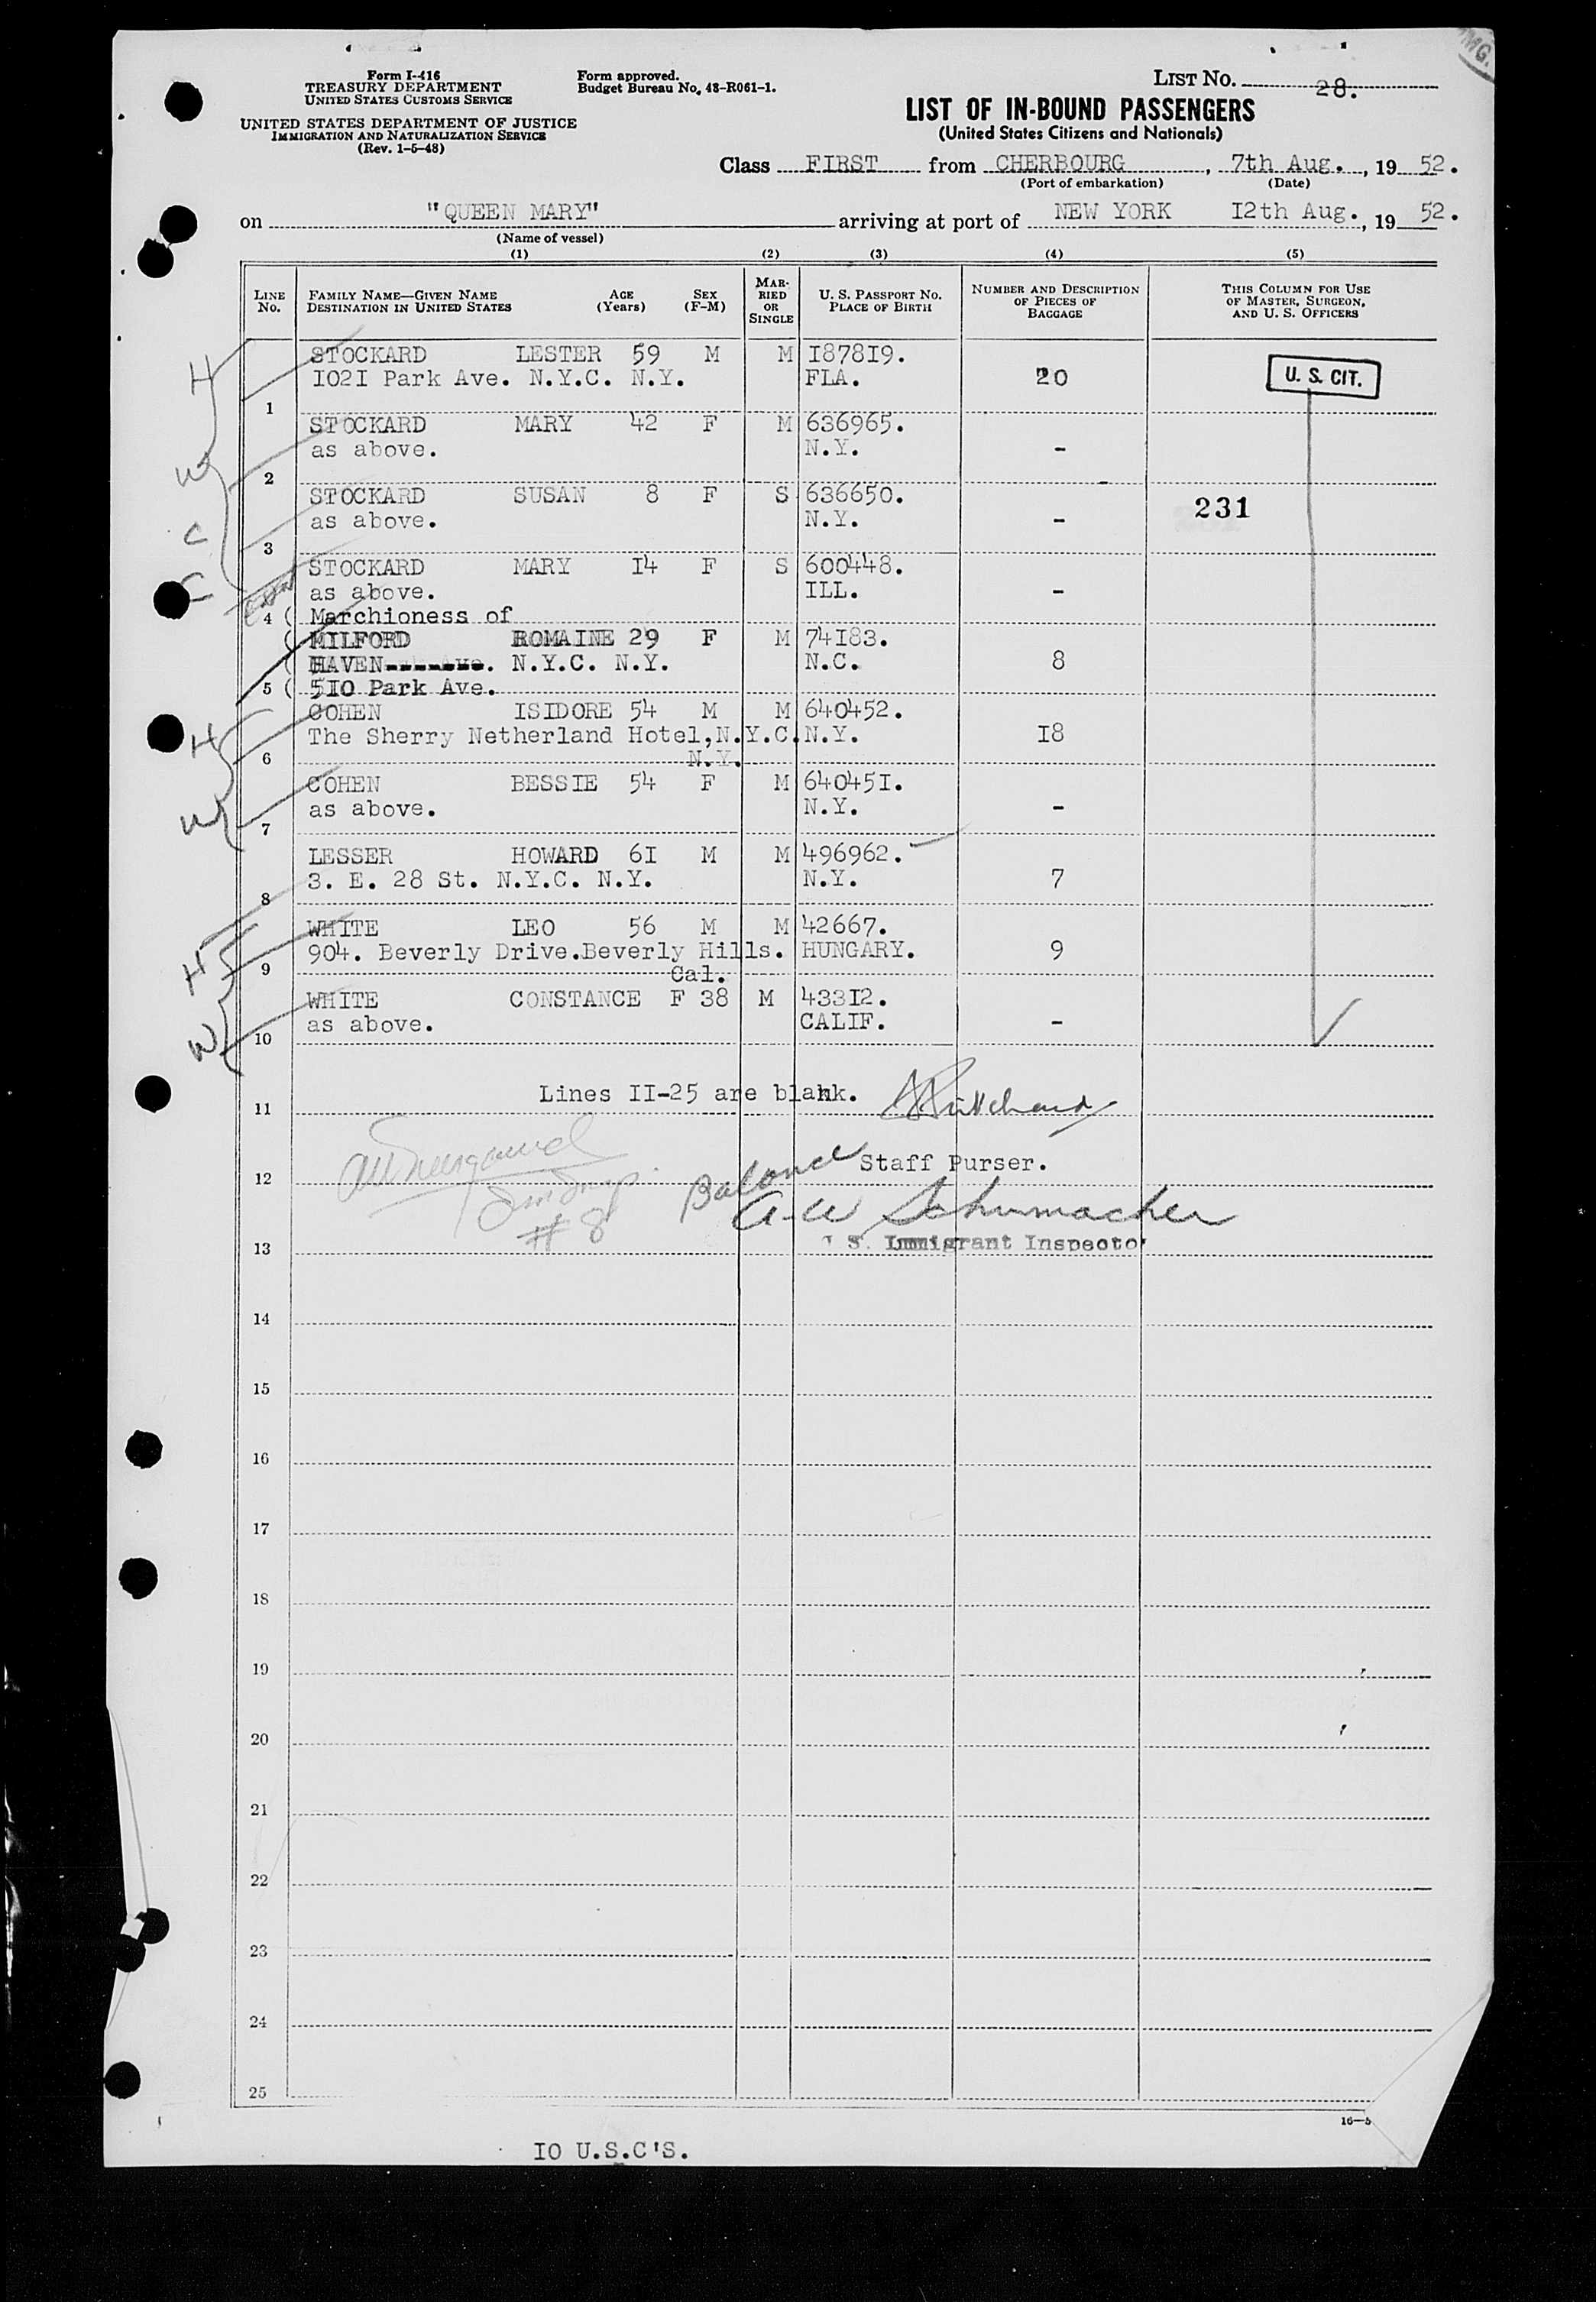 MG.
Form I-416
TREASURY DEPARTMENT
UNITED STATES CUSTOMS SERVICE
UNITED STATES DEPARTMENT OF JUSTICE
IMMIGRATION AND NATURALIZATION SERVICE
(Rev. 1-5-48)
Form approved.
Budget Bureau No. 43-R061-1.
LIST NO. 28.
LIST OF IN-BOUND PASSENGERS
(United States Citizens and Nationals)
Class FIRST from CHERBOURG, 7th Aug., 19 52.
(Port of embarkation) (Date)
on "QUEEN MARY" arriving at port of NEW YORK I2th Aug., 19 52.
(Name of vessel)
(1) (2) (3) (4) (5)
LINE NO. FAMILY NAME—GIVEN NAME DESTINATION IN UNITED STATES AGE (Years) SEX (F-M) MARRIED OR SINGLE U. S. PASSPORT NO. PLACE OF BIRTH NUMBER AND DESCRIPTION OF PIECES OF BAGGAGE THIS COLUMN FOR USE OF MASTER, SURGEON, AND U. S. OFFICERS
H STOCKARD LESTER 59 M M I878I9.
I02I Park Ave. N.Y.C. N.Y. FLA. 20 U. S. CIT.
1
STOCKARD MARY 42 F M 636965.
W as above. N.Y. -
2
STOCKARD SUSAN 8 F S 636650.
C as above. N.Y. - 231
3
STOCKARD MARY I4 F S 600448.
C as above. ILL. -
4 ( Marchioness of
( MILFORD ROMAINE 29 F M 74I83.
( HAVEN N.Y.C. N.Y. N.C. 8
5 ( 5IO Park Ave.
COHEN ISIDORE 54 M M 640452.
H The Sherry Netherland Hotel,N.Y.C. N.Y. I8
6 N.Y.
COHEN BESSIE 54 F M 64045I.
W as above. N.Y. -
7
LESSER HOWARD 6I M M 496962.
3. E. 28 St. N.Y.C. N.Y. N.Y. 7
8
WHITE LEO 56 M M 42667.
H 904. Beverly Drive.Beverly Hills. HUNGARY. 9
9 Cal.
WHITE CONSTANCE F 38 M 433I2.
W as above. CALIF. -
10
Lines II-25 are blank.
11
Staff Purser.
12
Balance
A.W Schumacher
# 8
U S. Immigrant Inspector
13
14
15
16
17
18
19
20
21
22
23
24
25
16—5
IO U.S.C'S.